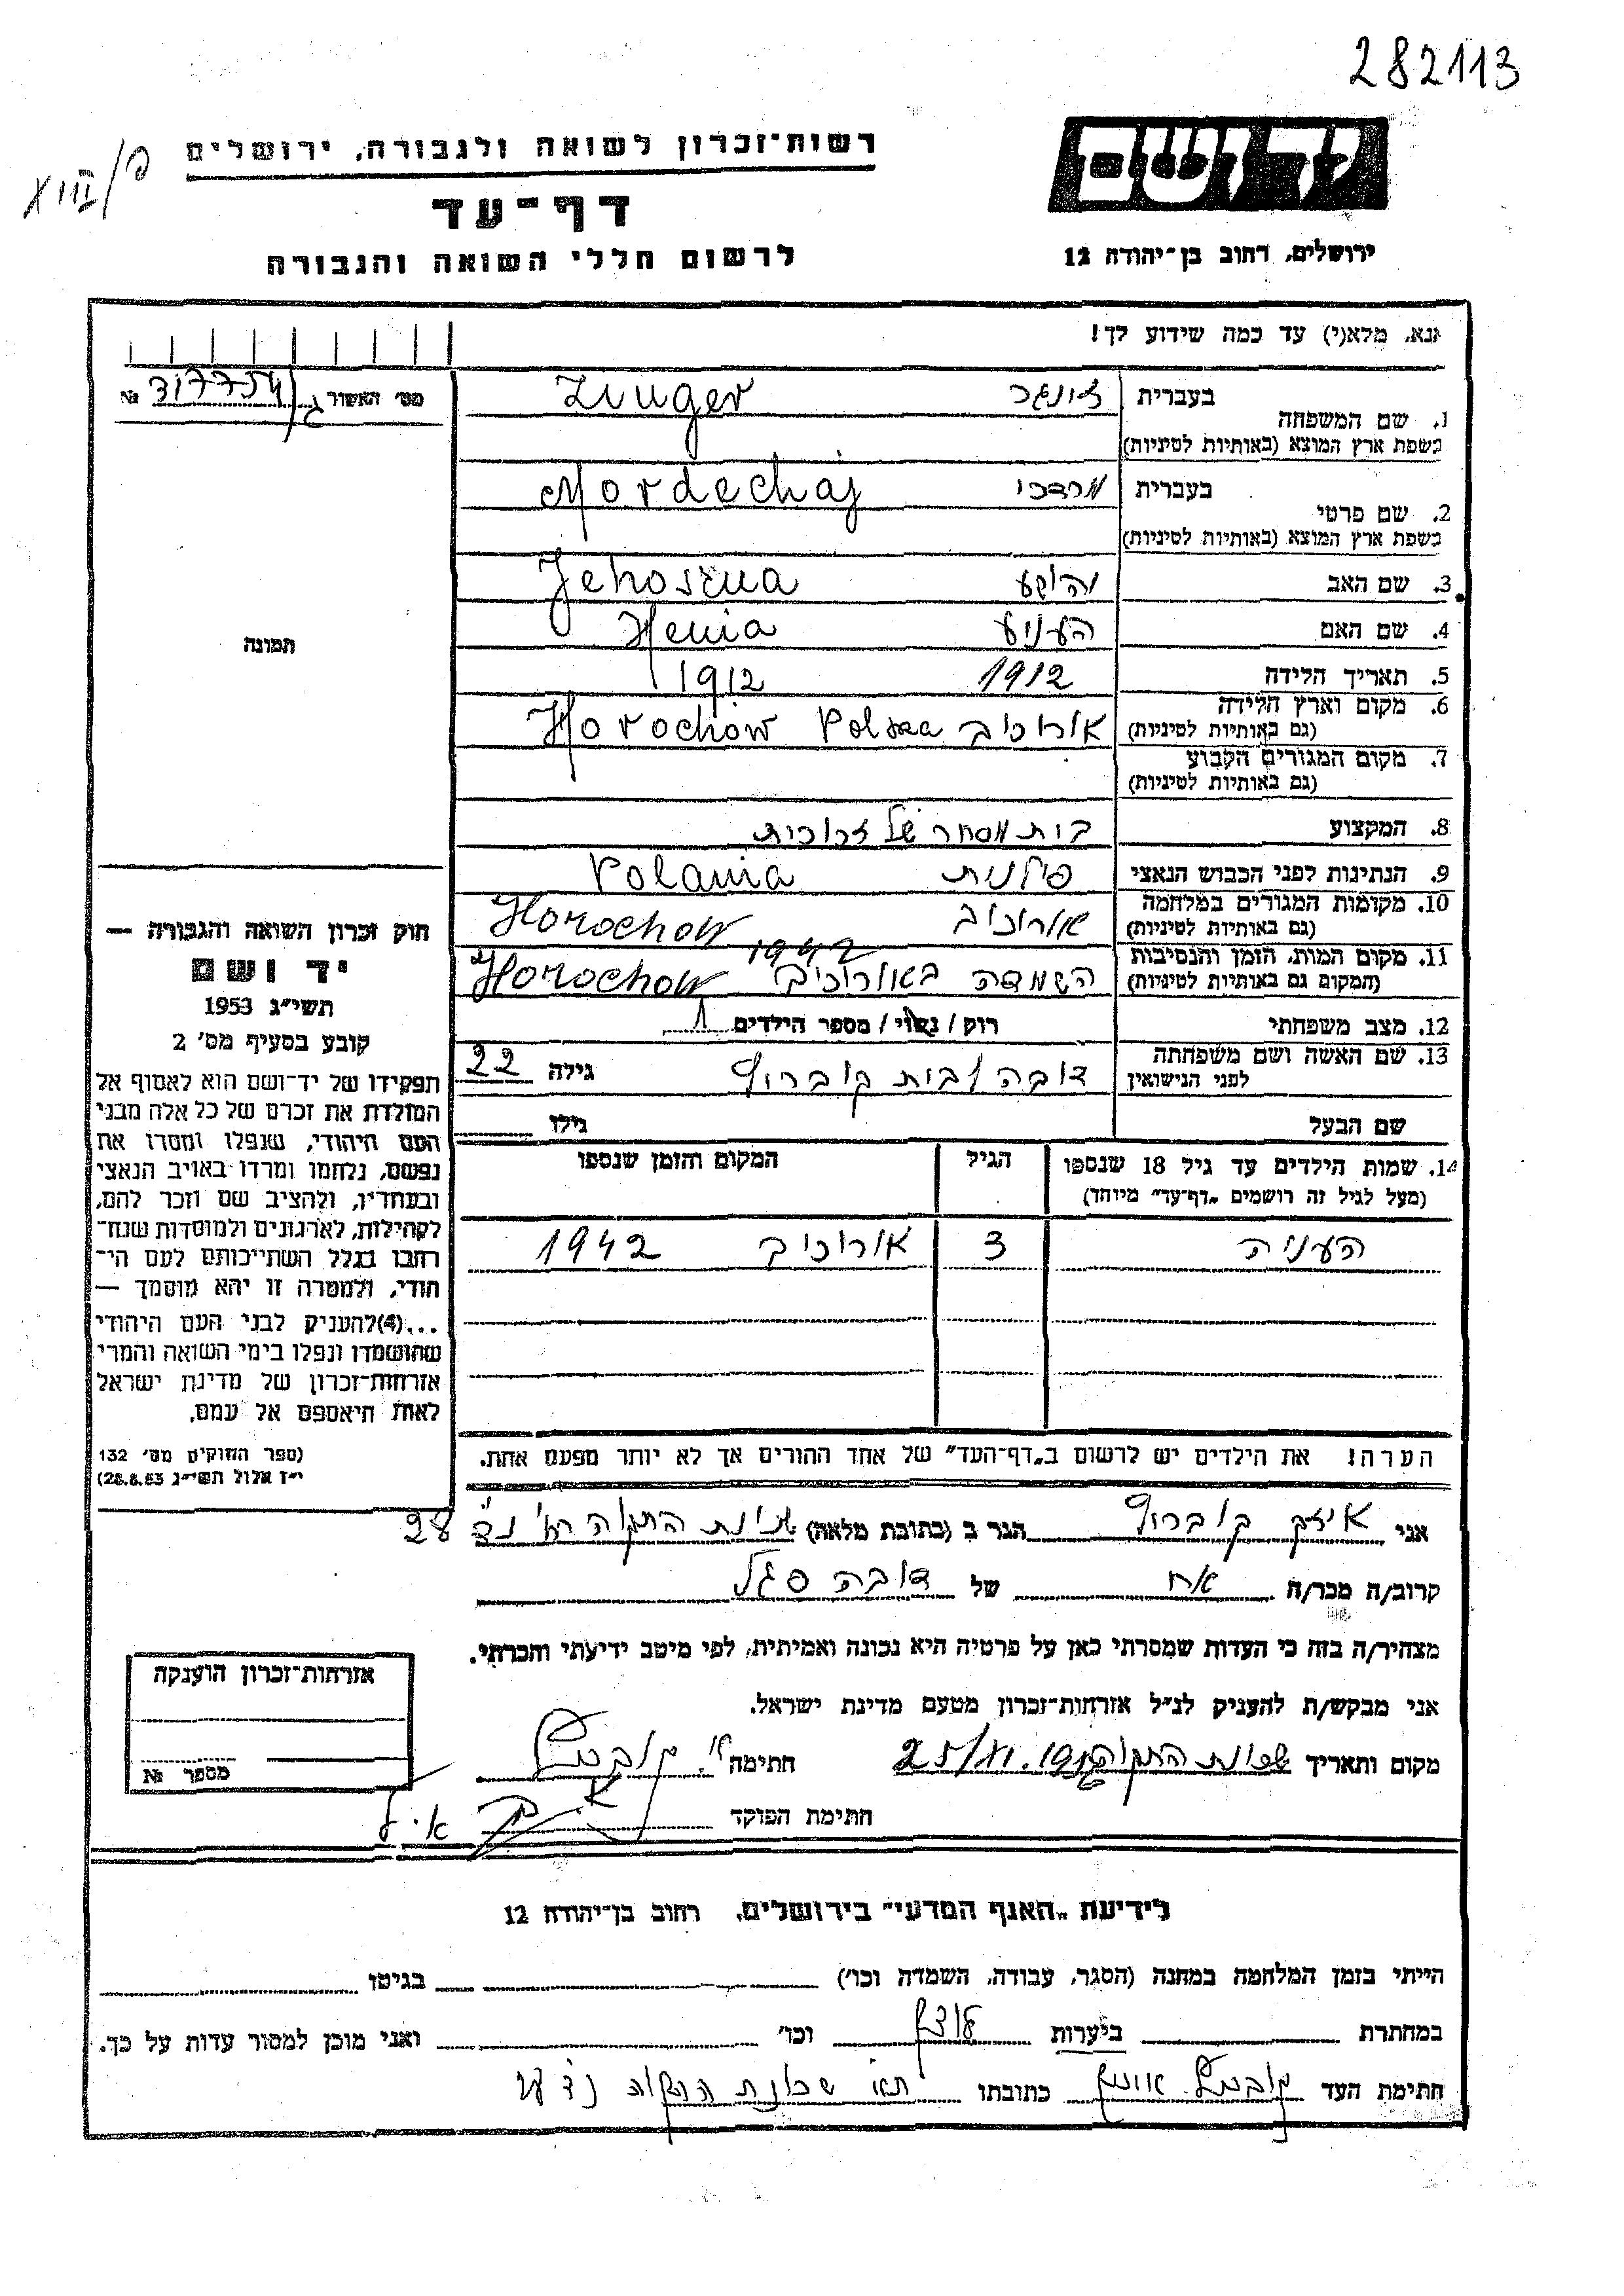 282113
XIII/פ
יד ושם
רשות־זכרון לשואה ולגבורה, ירושלים
דף־עד
ירושלים, רחוב בן־יהודה 12
לרשום חללי השואה והגבורה
נא, מלא(י) עד כמה שידוע לך!
מס׳ האשור № 317754
1. שם המשפחה בעברית זונגר Zunger
בשפת ארץ המוצא (באותיות לטיניות)
2. שם פרטי בעברית מרדכי Mordechaj
בשפת ארץ המוצא (באותיות לטיניות)
3. שם האב יהושע Jehoszua
4. שם האם העניע Henia
תמונה
5. תאריך הלידה 1912 1912
6. מקום וארץ הלידה אורוכיב Horochów Polska
(גם באותיות לטיניות)
7. מקום המגורים הקבוע
(גם באותיות לטיניות)
8. המקצוע בית מסחר של זכוכית
9. הנתינות לפני הכבוש הנאצי פולנית Polania
10. מקומות המגורים במלחמה אורוכיב Horochow
(גם באותיות לטיניות)
11. מקום המות, הזמן והנסיבות 1942
(המקום גם באותיות לטיניות) השמדה באורוכיב Horochow
12. מצב משפחתי רוק / נשוי / מספר הילדים 1
13. שם האשה ושם משפחתה דובה לבית קוברוף גילה 22
לפני הנישואין
שם הבעל גילו
14. שמות הילדים עד גיל 18 שנספו הגיל המקום והזמן שנספו
(מעל לגיל זה רושמים „דף־עד״ מיוחד)
העניה 3 אורוכיב 1942
הערה! את הילדים יש לרשום ב„דף־העד״ של אחד ההורים אך לא יותר מפעם אחת.
חוק זכרון השואה והגבורה —
יד ושם
תשי״ג 1953
קובע בסעיף מס׳ 2
תפקידו של יד־ושם הוא לאסוף אל
המולדת את זכרם של כל אלה מבני
העם היהודי, שנפלו ומסרו את
נפשם, נלחמו ומרדו באויב הנאצי
ובעוזריו, ולהציב שם וזכר להם,
לקהילות, לארגונים ולמוסדות שנח־
רבו בגלל השתייכותם לעם הי־
הודי, ולמטרה זו יהא מוסמך —
...(4)להעניק לבני העם היהודי
שהושמדו ונפלו בימי השואה והמרי
אזרחות־זכרון של מדינת ישראל
לאות היאספם אל עמם.
(ספר החוקים מס׳ 132
י״ז אלול תשי״ג 28.8.53)
אני איזק קוברוף הגר ב (כתובת מלאה) שכונת התקוה
קרוב/ה מכר/ה אח של דובה סגל
מצהיר/ה בזה כי העדות שמסרתי כאן על פרטיה היא נכונה ואמיתית, לפי מיטב ידיעתי והכרתי.
אני מבקש/ת להעניק לנ״ל אזרחות־זכרון מטעם מדינת ישראל.
מקום ותאריך שכונת התקוה חתימה
חתימת הפוקד
אזרחות־זכרון הוענקה
מספר №
לידיעת „האגף המדעי״ בירושלים, רחוב בן־יהודה 12
הייתי בזמן המלחמה במחנה (הסגר, עבודה, השמדה וכו׳) בגיטו
במחתרת ביערות וכו׳ ואני מוכן למסור עדות על כך.
חתימת העד כתובתו שכונת התקוה